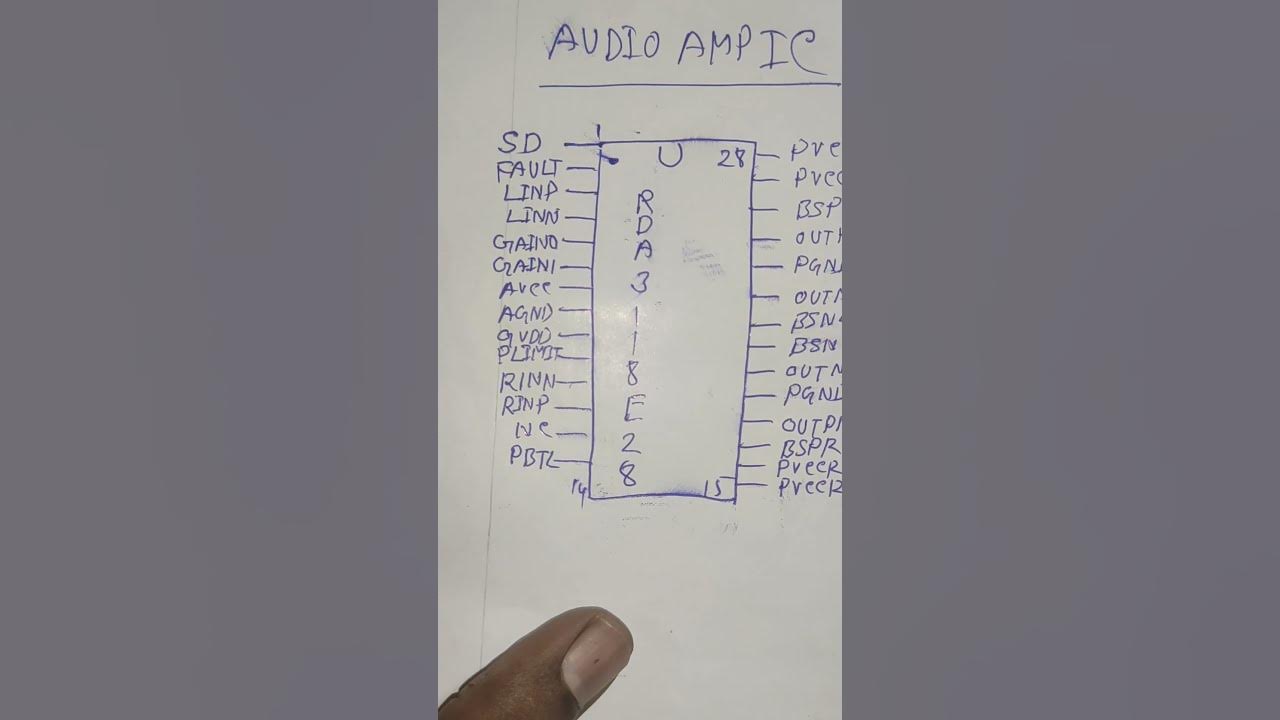 AUDIO AMP IC
1
SD
FAULT
LINP
LINN
GAIN0
GAIN1
AVCC
AGND
GVDD
PLIMIT
RINN
RINP
NC
PBTL
14
U
28
R
D
A
3
1
1
8
E
2
8
15
PVC
PVCC
BSP
OUT
PGN
OUT
BSN
BSN
OUTN
PGND
OUTP
BSPR
PVCCR
PVCCR